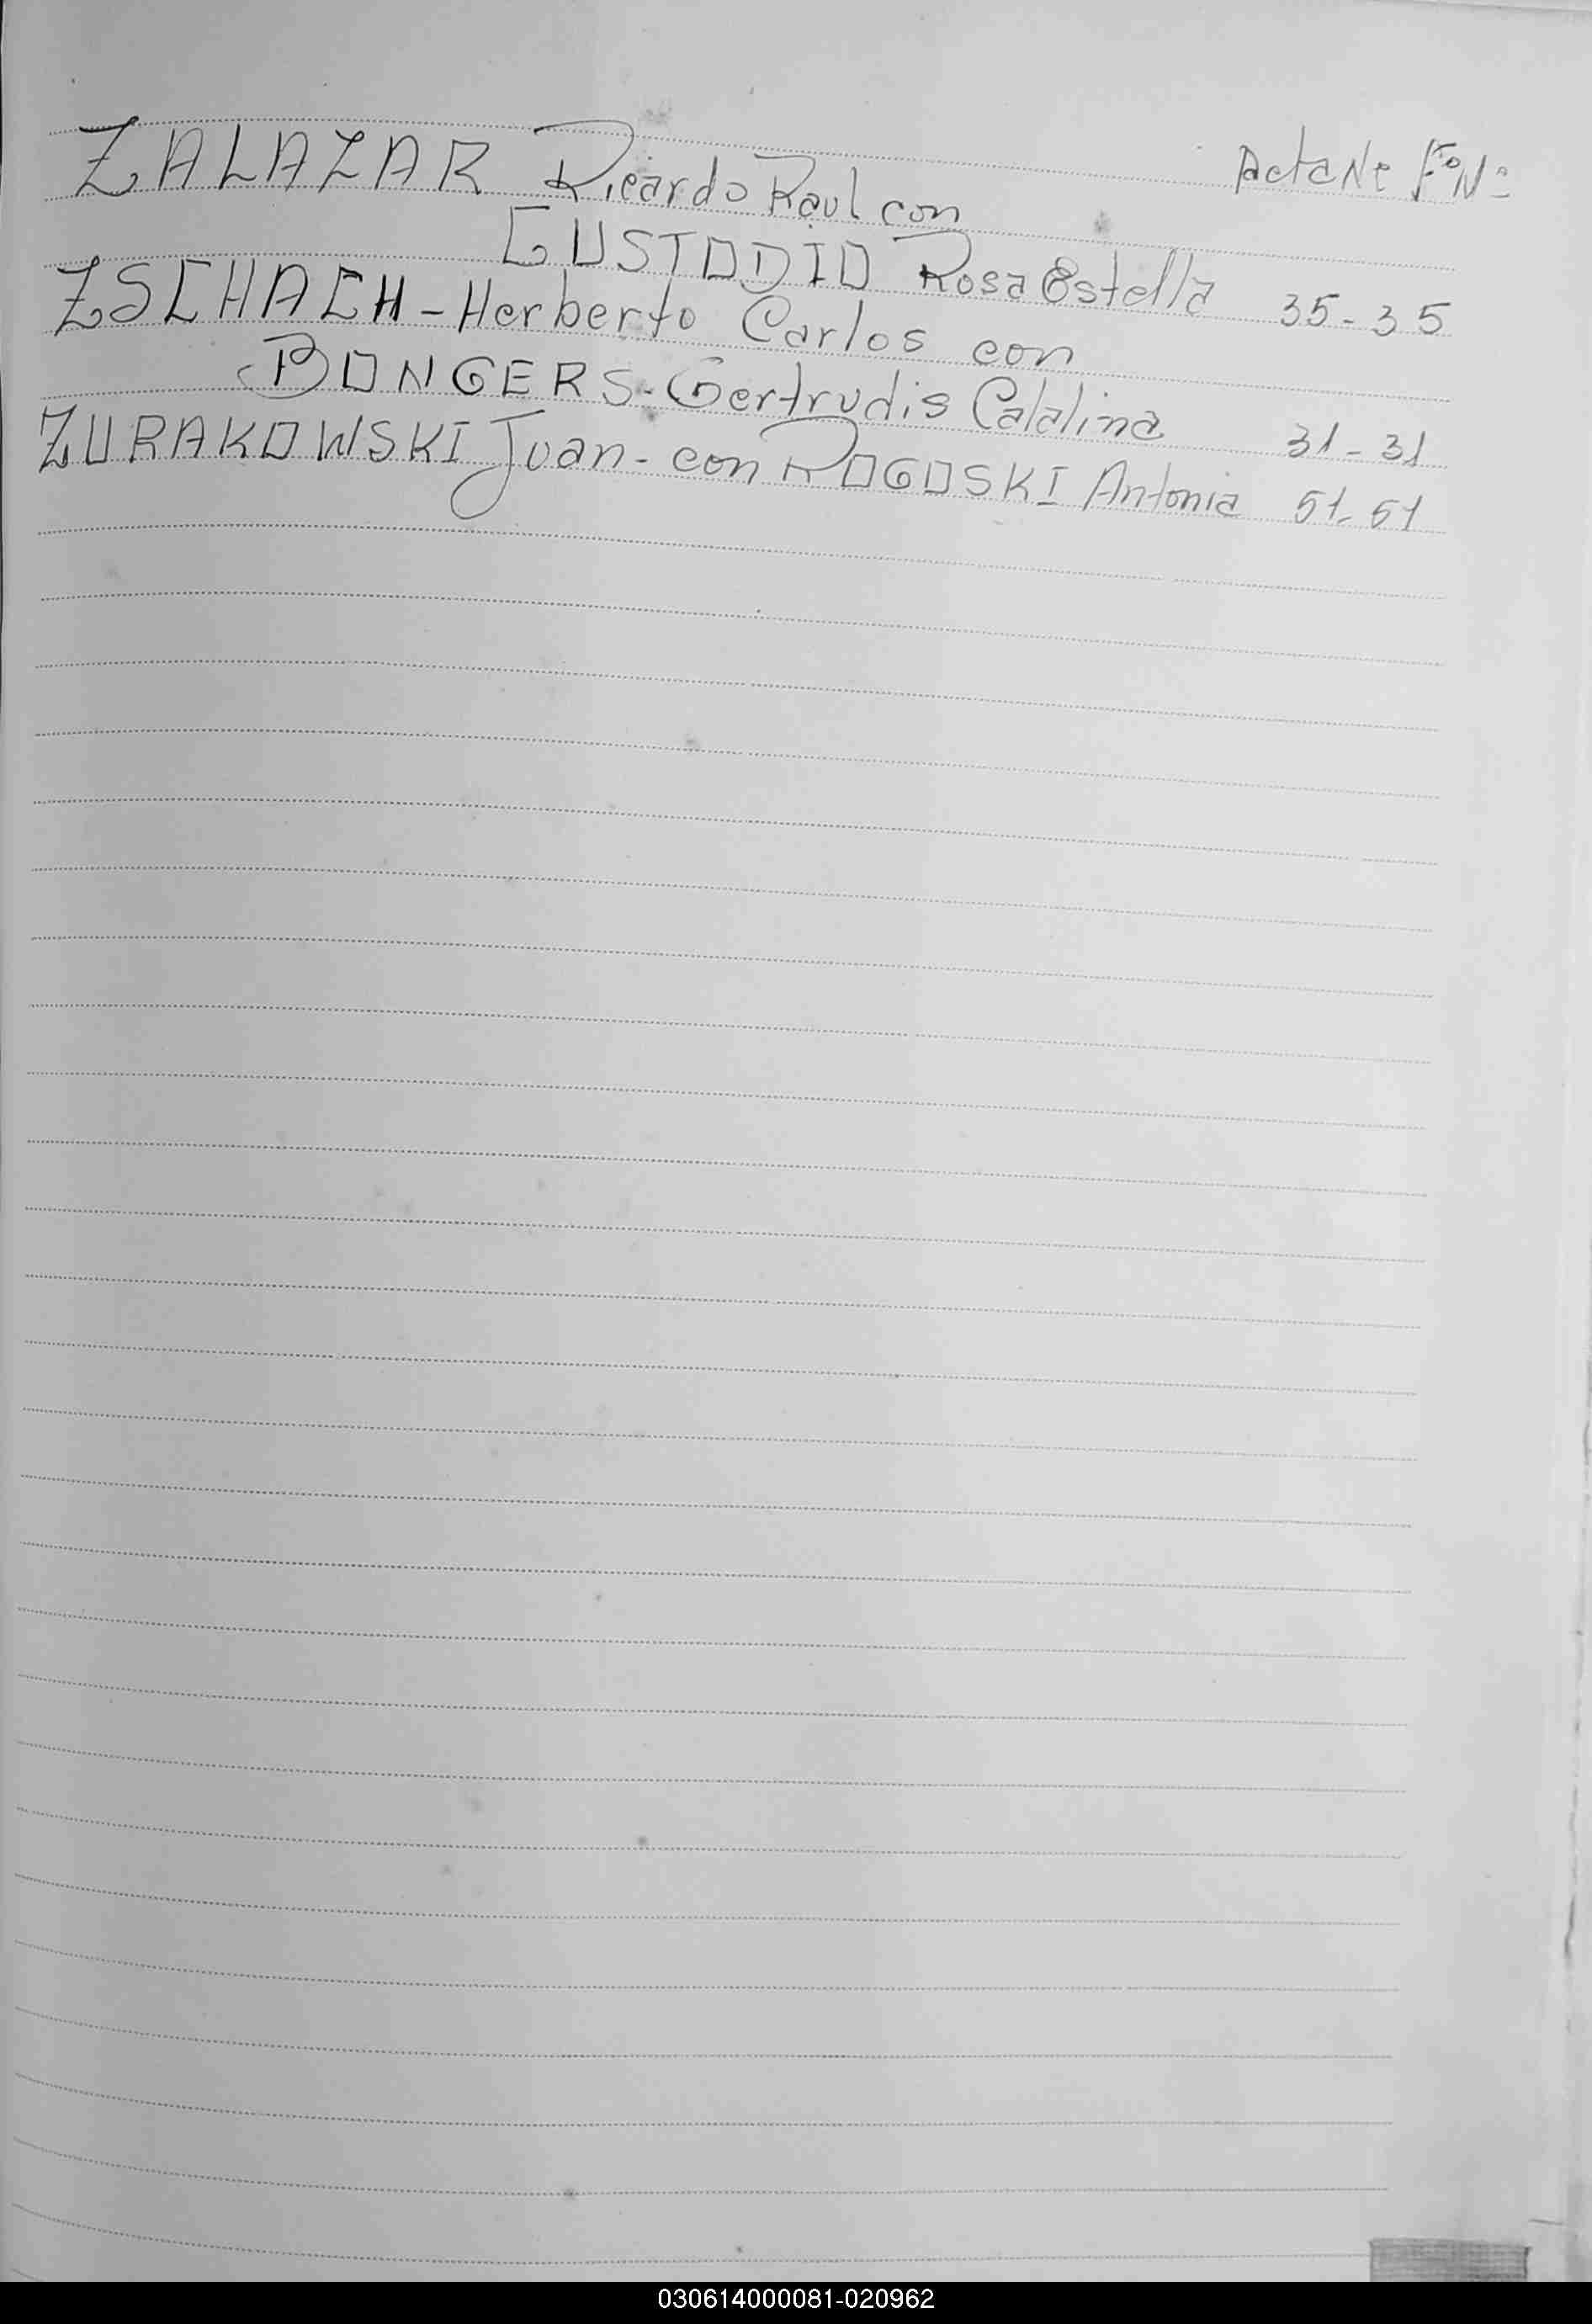 Acta Nº Fº Nº
ZALAZAR Ricardo Raul con
CUSTODIO Rosa Estella 35-35
ZSCHACH - Herberto Carlos con
BONGERS - Gertrudis Catalina 31-31
ZURAKOWSKI Juan - con ROGOSKI Antonia 51-51
030614000081-020962